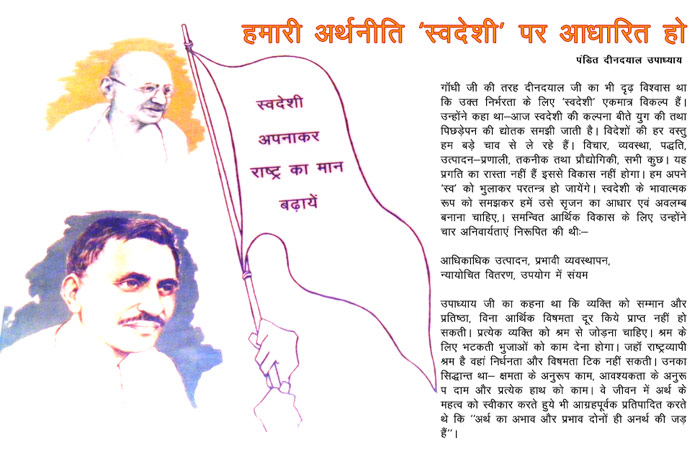 हमारी अर्थनीति ‘स्वदेशी’ पर आधारित हो
पंडित दीनदयाल उपाध्याय
स्वदेशी
अपनाकर
राष्ट्र का मान
बढ़ायें
गाँधी जी की तरह दीनदयाल जी का भी दृढ़ विश्वास था
कि उक्त निर्भरता के लिए ‘स्वदेशी’ एकमात्र विकल्प हैं।
उन्होंने कहा था–आज स्वदेशी की कल्पना बीते युग की तथा
पिछड़ेपन की द्योतक समझी जाती है। विदेशों की हर वस्तु
हम बड़े चाव से ले रहे हैं। विचार, व्यवस्था, पद्धति,
उत्पादन–प्रणाली, तकनीक तथा प्रौद्योगिकी, सभी कुछ। यह
प्रगति का रास्ता नहीं हैं इससे विकास नहीं होगा। हम अपने
‘स्व’ को भुलाकर परतन्त्र हो जायेंगे। स्वदेशी के भावात्मक
रूप को समझकर हमें उसे सृजन का आधार एवं अवलम्ब
बनाना चाहिए,। समन्वित आर्थिक विकास के लिए उन्होंने
चार अनिवार्यताएं निरूपित की थीः–
आधिकाधिक उत्पादन, प्रभावी व्यवस्थापन,
न्यायोचित वितरण, उपयोग में संयम
उपाध्याय जी का कहना था कि व्यक्ति को सम्मान और
प्रतिष्ठा, विना आर्थिक विषमता दूर किये प्राप्त नहीं हो
सकती। प्रत्येक व्यक्ति को श्रम से जोड़ना चाहिए। श्रम के
लिए भटकती भुजाओं को काम देना होगा। जहाँ राष्ट्रव्यापी
श्रम है वहां निर्धनता और विषमता टिक नहीं सकती। उनका
सिद्धान्त था– क्षमता के अनुरूप काम, आवश्यकता के अनुरू
प दाम और प्रत्येक हाथ को काम। वे जीवन में अर्थ के
महत्व को स्वीकार करते हुये भी आग्रहपूर्वक प्रतिपादित करते
थे कि “अर्थ का अभाव और प्रभाव दोनों ही अनर्थ की जड़
हैं”।